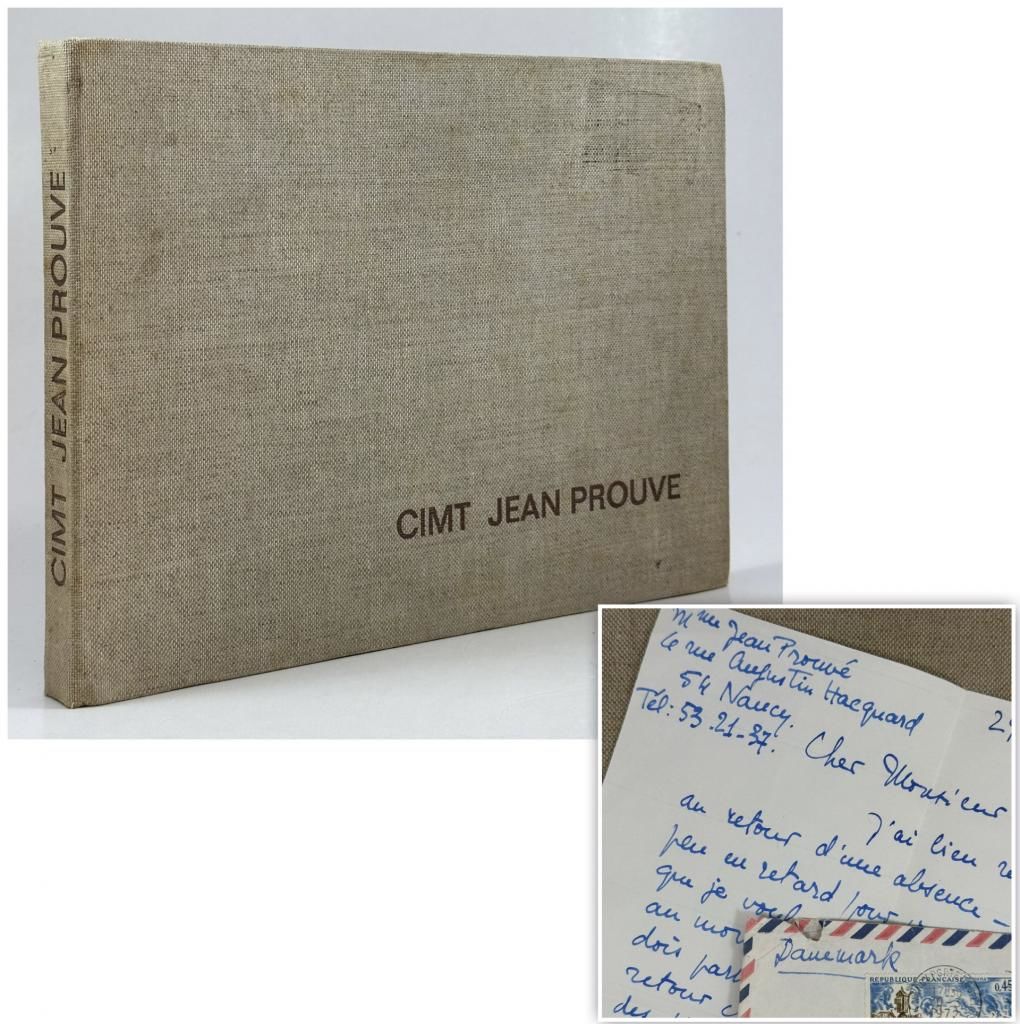 CIMT JEAN PROUVE
CIMT JEAN PROUVE
Mme Jean Prouvé
4 rue Augustin Hacquard
54 Nancy.
Tél: 53.21-37.
Cher Monsieur
J'ai bien
au retour d'une absence –
peu en retard pour
que je
au
dois
retour
des
Danemark
REPUBLIQUE FRANÇAISE
0,45